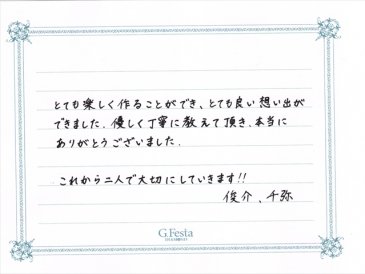 とても楽しく作ることができ、とても良い想い出が
できました。優しく丁寧に教えて頂き、本当に
ありがとうございました。
これから二人で大切にしていきます!!
俊介、千弥
G.Festa